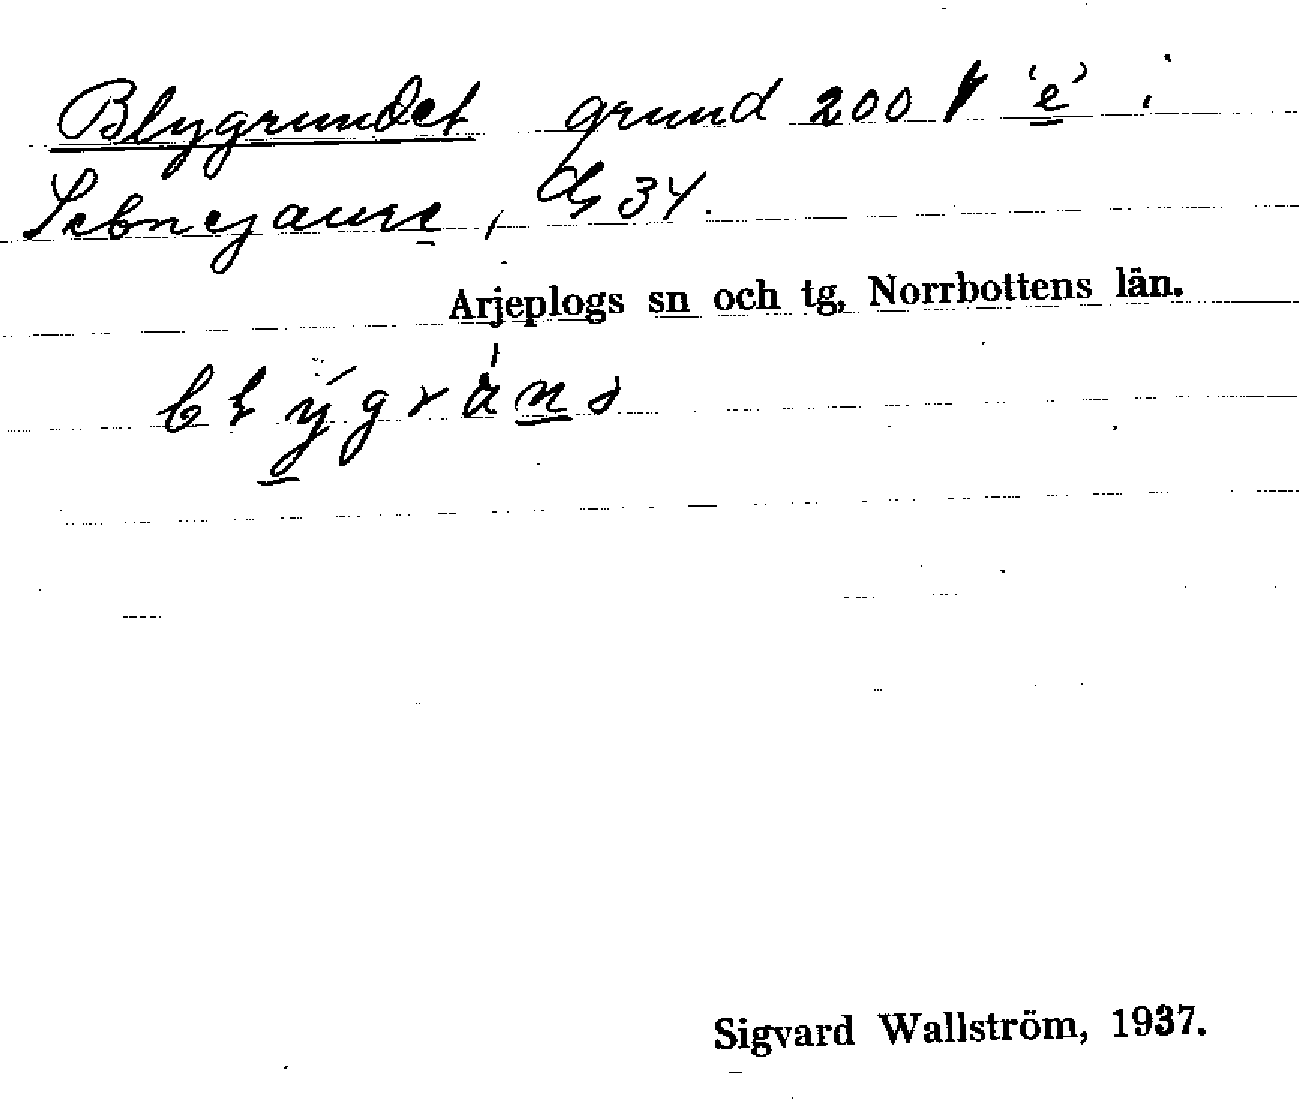 Blygrundet grund 200 'e' i
Sebnejaure, 34.
Arjeplogs sn och tg, Norrbottens län.
Sigvard Wallström, 1937.